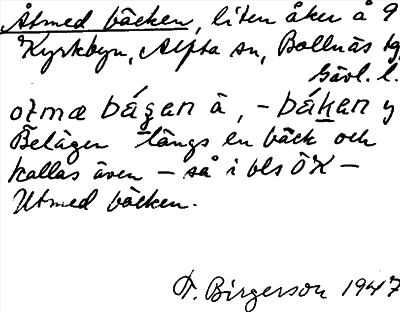 Åtmed bäcken, liten åker å 9
Kyrkbyn, Alfta sn, Bollnäs tg,
Gävl. l.
otmæ bágan ä, - bákan y
Belägen längs en bäck och
kallas även - så i bls ÖK -
Utmed bäcken.
F. Birgerson 1947